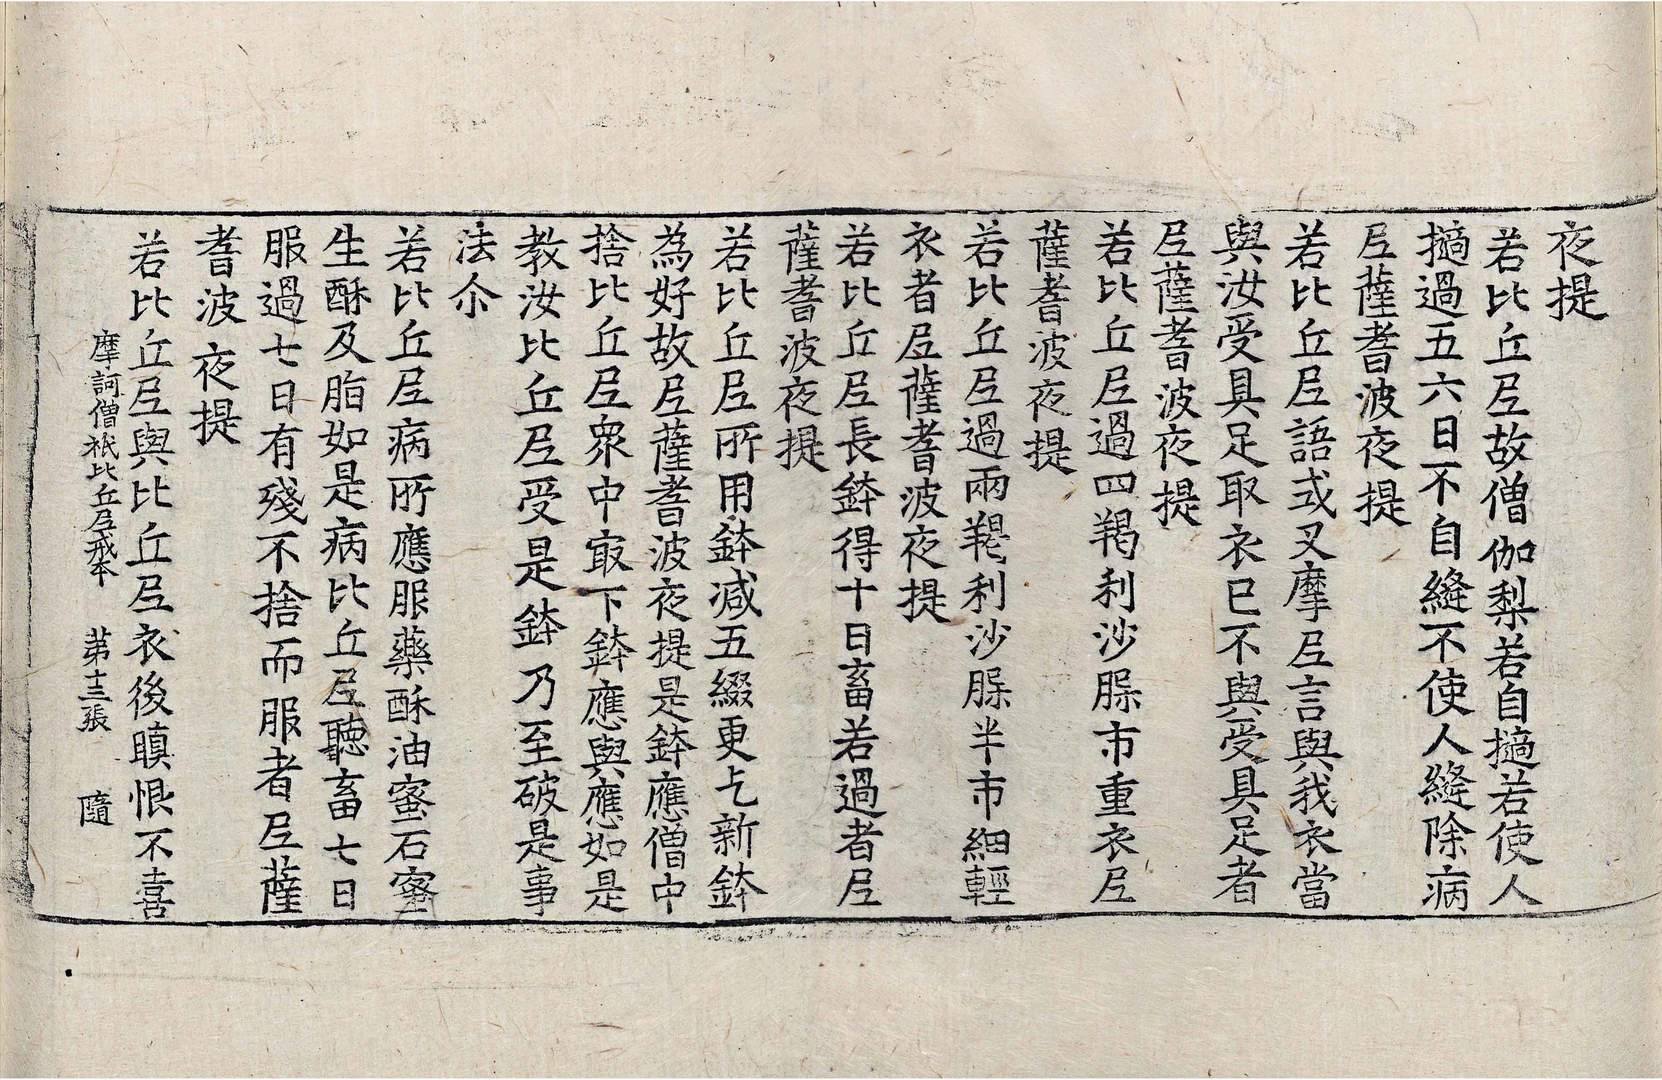 夜提
若比丘尼故僧伽梨若自擿若使人
擿過五六日不自縫不使人縫除病
尼薩耆波夜提
若比丘尼語式叉摩尼言與我衣當
與汝受具足取衣已不與受具足者
尼薩耆波夜提
若比丘尼過四羯利沙縣市重衣尼
薩耆波夜提
若比丘尼過兩羯利沙縣半市細輕
衣者尼薩耆波夜提
若比丘尼長鉢得十日畜若過者尼
薩耆波夜提
若比丘尼所用鉢減五綴更乞新鉢
為好故尼薩耆波夜提是鉢應僧中
捨比丘尼衆中㝡下鉢應與應如是
教汝比丘尼受是鉢乃至破是事
法尒
若比丘尼病所應服藥酥油蜜石蜜
生酥及脂如是病比丘尼聽畜七日
服過七日有殘不捨而服者尼薩
耆波夜提
摩訶僧祇比丘尼戒本 第十三張 隨
若比丘尼與比丘尼衣後瞋恨不喜